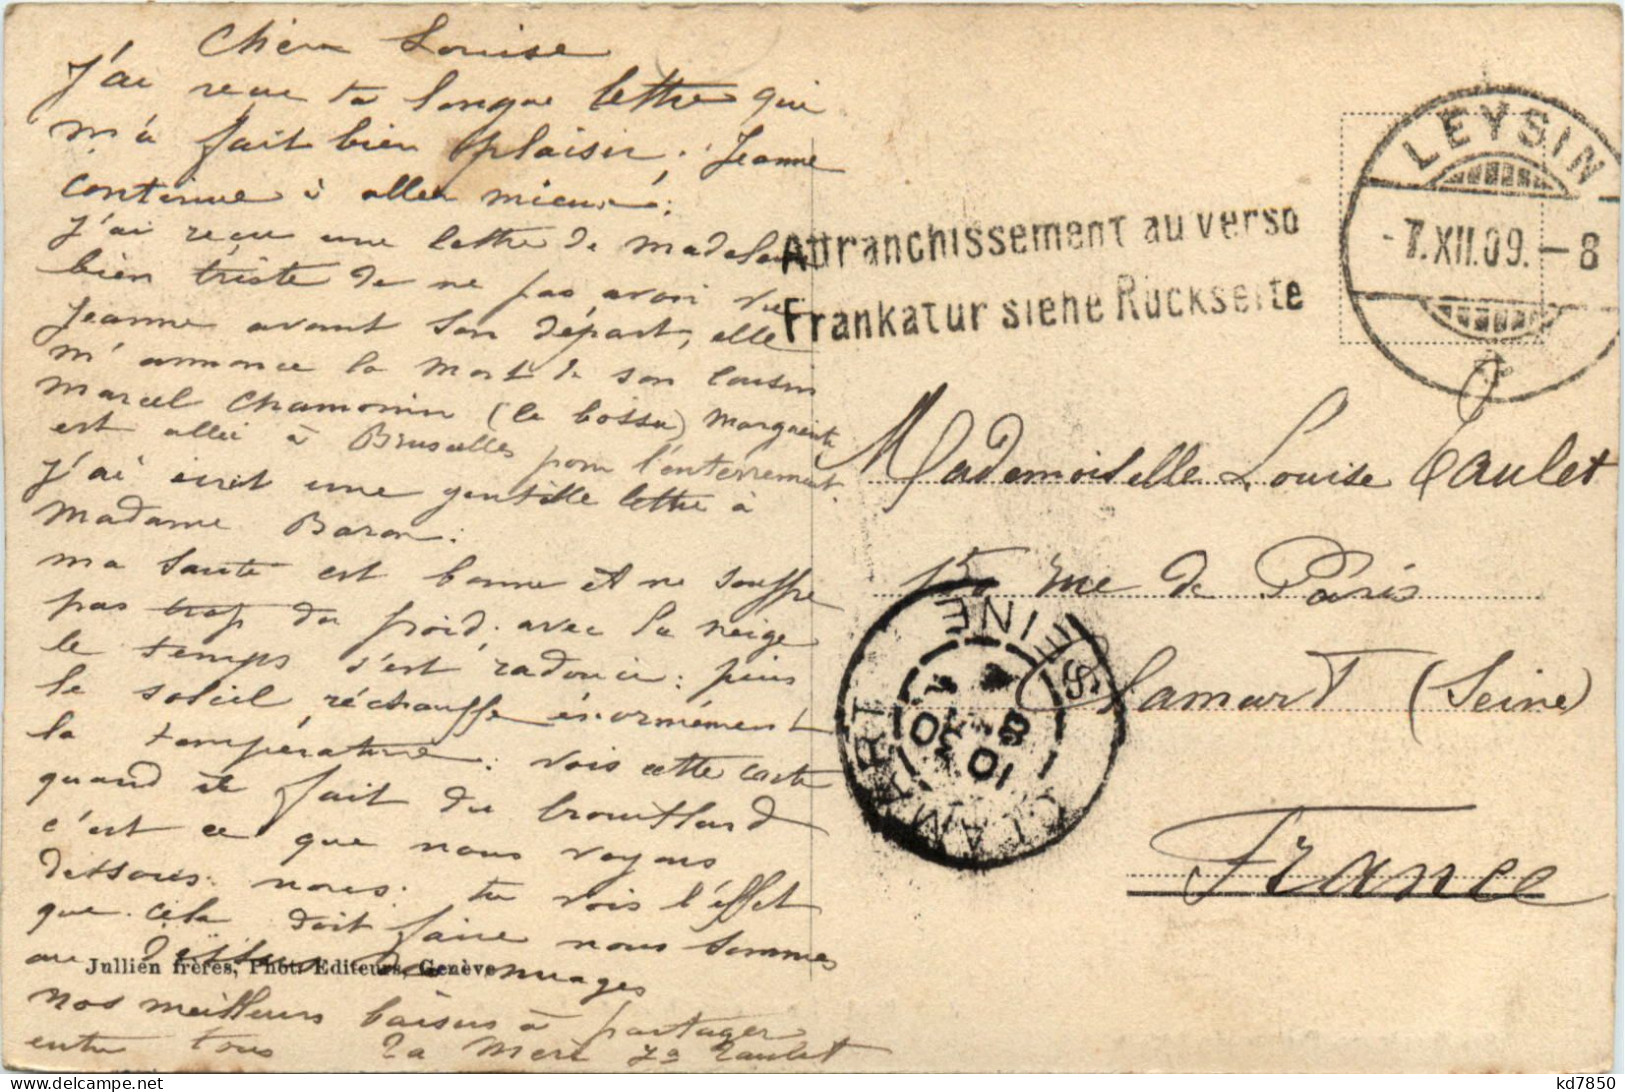 Chère Louise
J'ai reçu ta longue lettre qui
m'a fait bien plaisir. Jeanne
continue à aller mieux.
J'ai reçu une lettre de Madeleine
bien triste de ne pas avoir vu
Jeanne avant son départ, elle
m'annonce la mort de son cousin
Marcel Chamonin (le bossu) Marguerite
est allée à Bruxelles pour l'enterrement.
J'ai écrit une gentille lettre à
Madame Baron.
ma santé est bonne et ne souffre
pas trop du froid. avec la neige
le temps s'est radouci: puis
le soleil réchauffe énormément
la température: vois cette carte
quand il fait du brouillard
c'est ce que nous voyons
dessous nous. tu vois l'effet
que cela doit faire nous sommes
au dessus des nuages
nos meilleurs baisers à partager
entre tous La Mère Taulet
Jullien frères, Phot. Editeurs, Genève
Affranchissement au verso
Frankatur siehe Rückseite
LEYSIN
-7.XII.09.-8
Mademoiselle Louise Taulet
15 rue de Paris
Clamart (Seine)
France
CLAMART
SEINE
kd7850